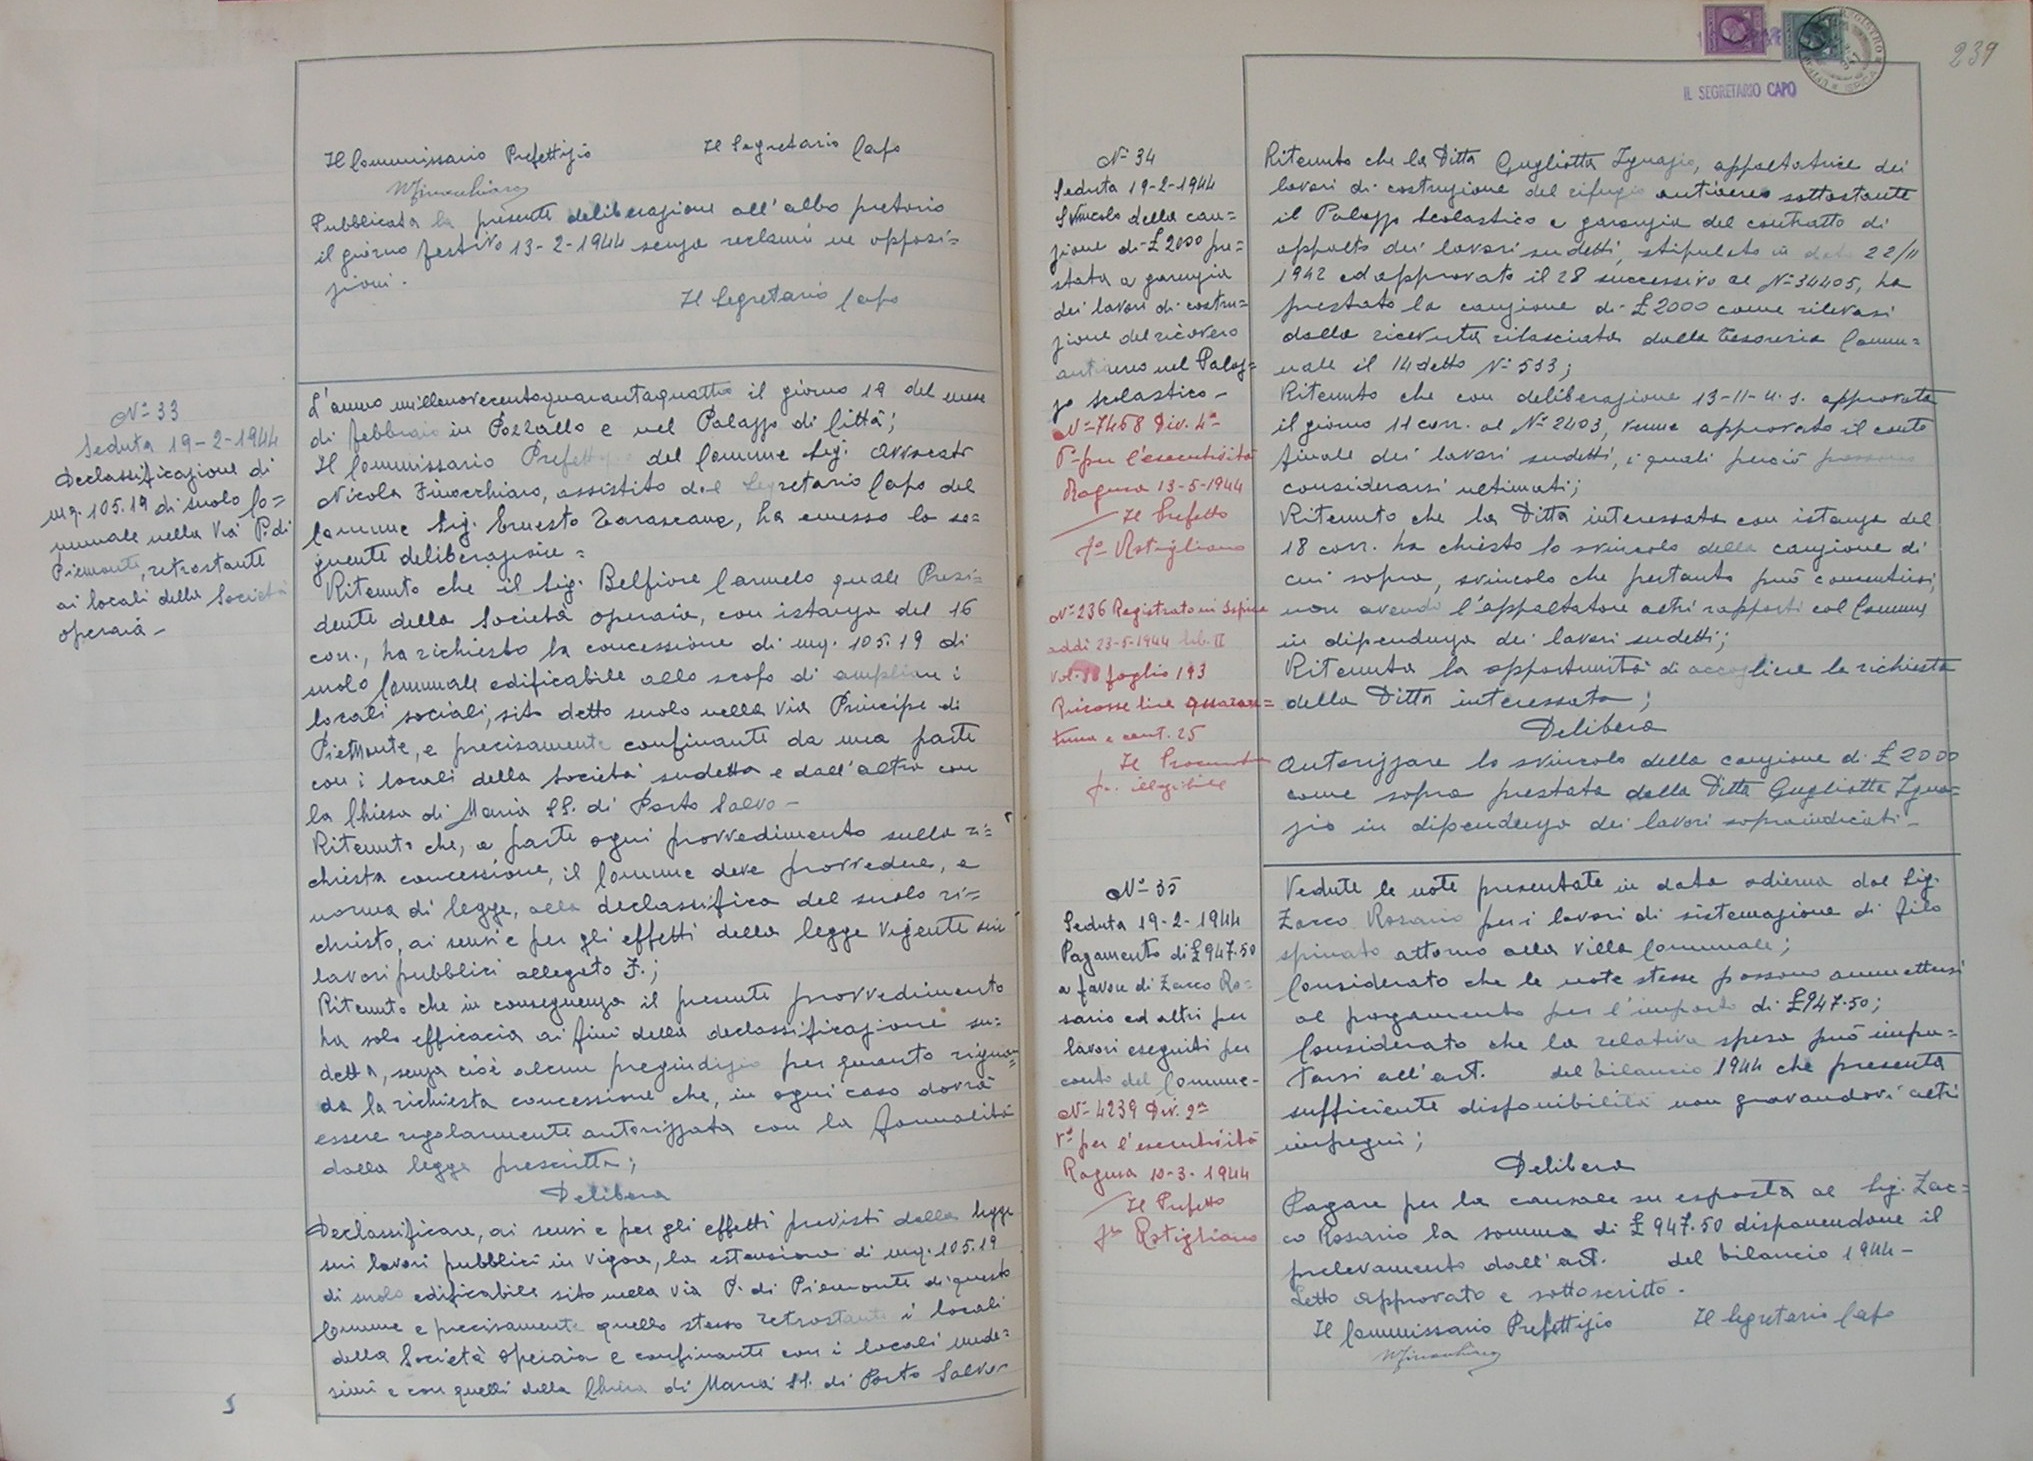 Il Commissario Prefettizio Il Segretario Capo
Pubblicata la presente deliberazione all'albo pretorio
il giorno festivo 13-2-1944 senza reclami ne opposi=
zioni.
Il Segretario Capo
N° 33
Seduta 19-2-1944
Declassificazione di
mq. 105.19 di suolo Co=
munale nella Via P. di
Piemonte, retrostante
ai locali della Società
operaia -
L'anno millenovecentoquarantaquattro il giorno 19 del mese
di febbraio in Pozzallo e nel Palazzo di Città;
Il Commissario Prefettizio del Comune Sig. Avvocato
Nicola Finocchiaro, assistito dal Segretario Capo del
Comune Sig. Ernesto Tarascane, ha emesso la se=
guente deliberazione =
Ritenuto che il Sig. Belfiore Carmelo quale Presi=
dente della Società operaia, con istanza del 16
corr., ha richiesto la concessione di mq. 105.19 di
suolo Comunale edificabile allo scopo di ampliare i
locali sociali, sito detto suolo nella Via Principe di
Piemonte, e precisamente confinante da una parte
con i locali della Società sudetta e dall'altra con
la Chiesa di Maria SS. di Porto Salvo -
Ritenuto che, a parte ogni provvedimento sulla ri=
chiesta concessione, il Comune deve provvedere, a
norma di legge, alla declassifica del suolo ri=
chiesto, ai sensi e per gli effetti della legge vigente sui
lavori pubblici allegato F.;
Ritenuto che in conseguenza il presente provvedimento
ha solo efficacia ai fini della declassificazione su=
detta, senza cioè alcun pregiudizio per quanto riguar=
da la richiesta concessione che, in ogni caso dovrà
essere regolarmente autorizzata con la formalità
dalla legge prescritta;
Delibera
Declassificare, ai sensi e per gli effetti previsti dalla legge
sui lavori pubblici in vigore, la estensione di mq. 105.19
di suolo edificabile sito nella Via P. di Piemonte di questo
Comune e precisamente quello stesso retrostante i locali
della Società Operaia e confinante con i locali mede=
simi e con quelli della Chiesa di Maria SS. di Porto Salvo-
239
IL SEGRETARIO CAPO
N° 34
Seduta 19-2-1944
Svincolo della cau=
zione di £ 2000 pre=
stata a garanzia
dei lavori di costru=
zione del ricovero
antiaereo nel Palaz=
zo scolastico -
N° 7468 Div. 4ª
V° per l'esecutività
Ragusa 13-5-1944
Il Prefetto
f° Ostigliano
N° 236 Registrato in Ispica
addì 23-5-1944 lib. II
vol. foglio 193
Riscosse lire quaran=
tuna e cent. 25
Il Procurat
f. illegibile
Ritenuto che la Ditta Gugliotta Ignazio, appaltatrice dei
lavori di costruzione del rifugio antiaereo sottostante
il Palazzo Scolastico e garanzia del contratto di
appalto dei lavori sudetti, stipulato in data 22/11
1942 ed approvato il 28 successivo al N° 34405, ha
prestato la cauzione di £ 2000 come rilevasi
dalla ricevuta rilasciata dalla Tesoreria Comu=
nale il 14 detto N° 533;
Ritenuto che con deliberazione 13-11-u.s. approvata
il giorno 11 corr. al N° 2403, venne approvato il conto
finale dei lavori sudetti, i quali perciò possono
considerarsi ultimati;
Ritenuto che la Ditta interessata con istanza del
18 corr. ha chiesto lo svincolo della cauzione di
cui sopra, svincolo che pertanto può consentirsi,
non avendo l'appaltatore altri rapporti col Comune
in dipendenza dei lavori sudetti;
Ritenuta la opportunità di accogliere la richiesta
della Ditta interessata;
Delibera
Autorizzare lo svincolo della cauzione di £ 2000
come sopra prestata dalla Ditta Gugliotta Igna=
zio in dipendenza dei lavori sopraindicati -
N° 35
Seduta 19-2-1944
Pagamento di £ 947.50
a favore di Zacco Ro=
sario ed altri per
lavori eseguiti per
conto del Comune -
N° 4239 Div. 2ª
V° per l'esecutività
Ragusa 10-3-1944
Il Prefetto
f° Ostigliano
Vedute le note presentate in data odierna dal Sig.
Zacco Rosario per i lavori di sistemazione di filo
spinato attorno alla Villa Comunale;
Considerato che le note stesse possono ammettersi
al pagamento per l'importo di £ 947.50;
Considerato che la relativa spesa può impu=
tarsi all'art. del bilancio 1944 che presenta
sufficiente disponibilità non gravandovi altri
impegni;
Delibera
Pagare per la causale su esposta al Sig. Zac=
co Rosario la somma di £ 947.50 disponendone il
prelevamento dall'art. del bilancio 1944 -
Letto approvato e sottoscritto.
Il Commissario Prefettizio Il Segretario Capo